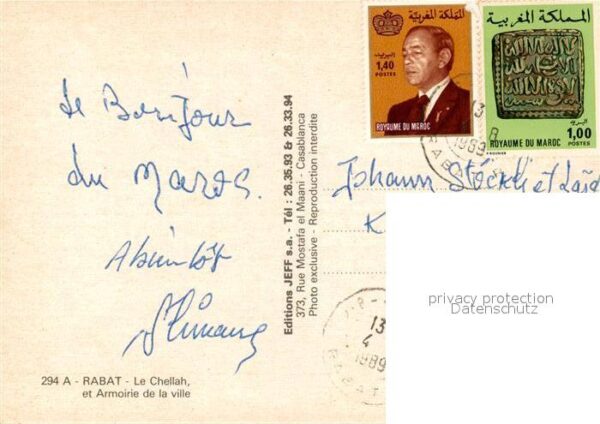 المملكة المغربية
البريد
1,40
POSTES
ROYAUME DU MAROC
المملكة المغربية
البريد
ROYAUME DU MAROC
1,00
POSTES
13
8
1989
RABAT
le Bonjour
du Maroc.
Abientôt
Editions JEFF s.a. - Tél : 26.35.93 & 26.33.94
373, Rue Mostafa el Maani - Casablanca
Photo exclusive - Reproduction interdite
Johann et
K
privacy protection
Datenschutz
13
4
1989
RABAT
294 A - RABAT - Le Chellah,
et Armoirie de la ville